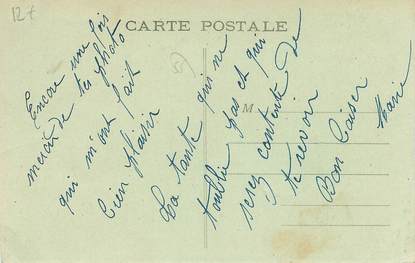 12 f
CARTE POSTALE
Encore une fois
merci de tes photo
qui m'ont fait
bien plaisir
Ta tante qui ne
t'oublie pas et qui
serez contente de
te revoir
Bon baiser
Marie
M